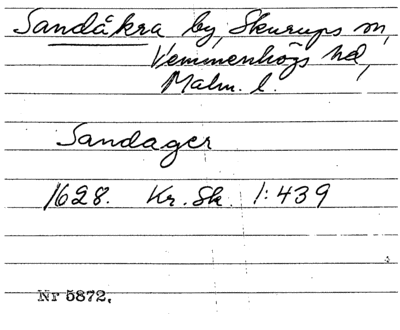 Sandåkra by, Skurups sn,
Vemmenhögs hd,
Malm. l.
Sandager
1628. Kr. Sk. 1:439
Nr 5872.